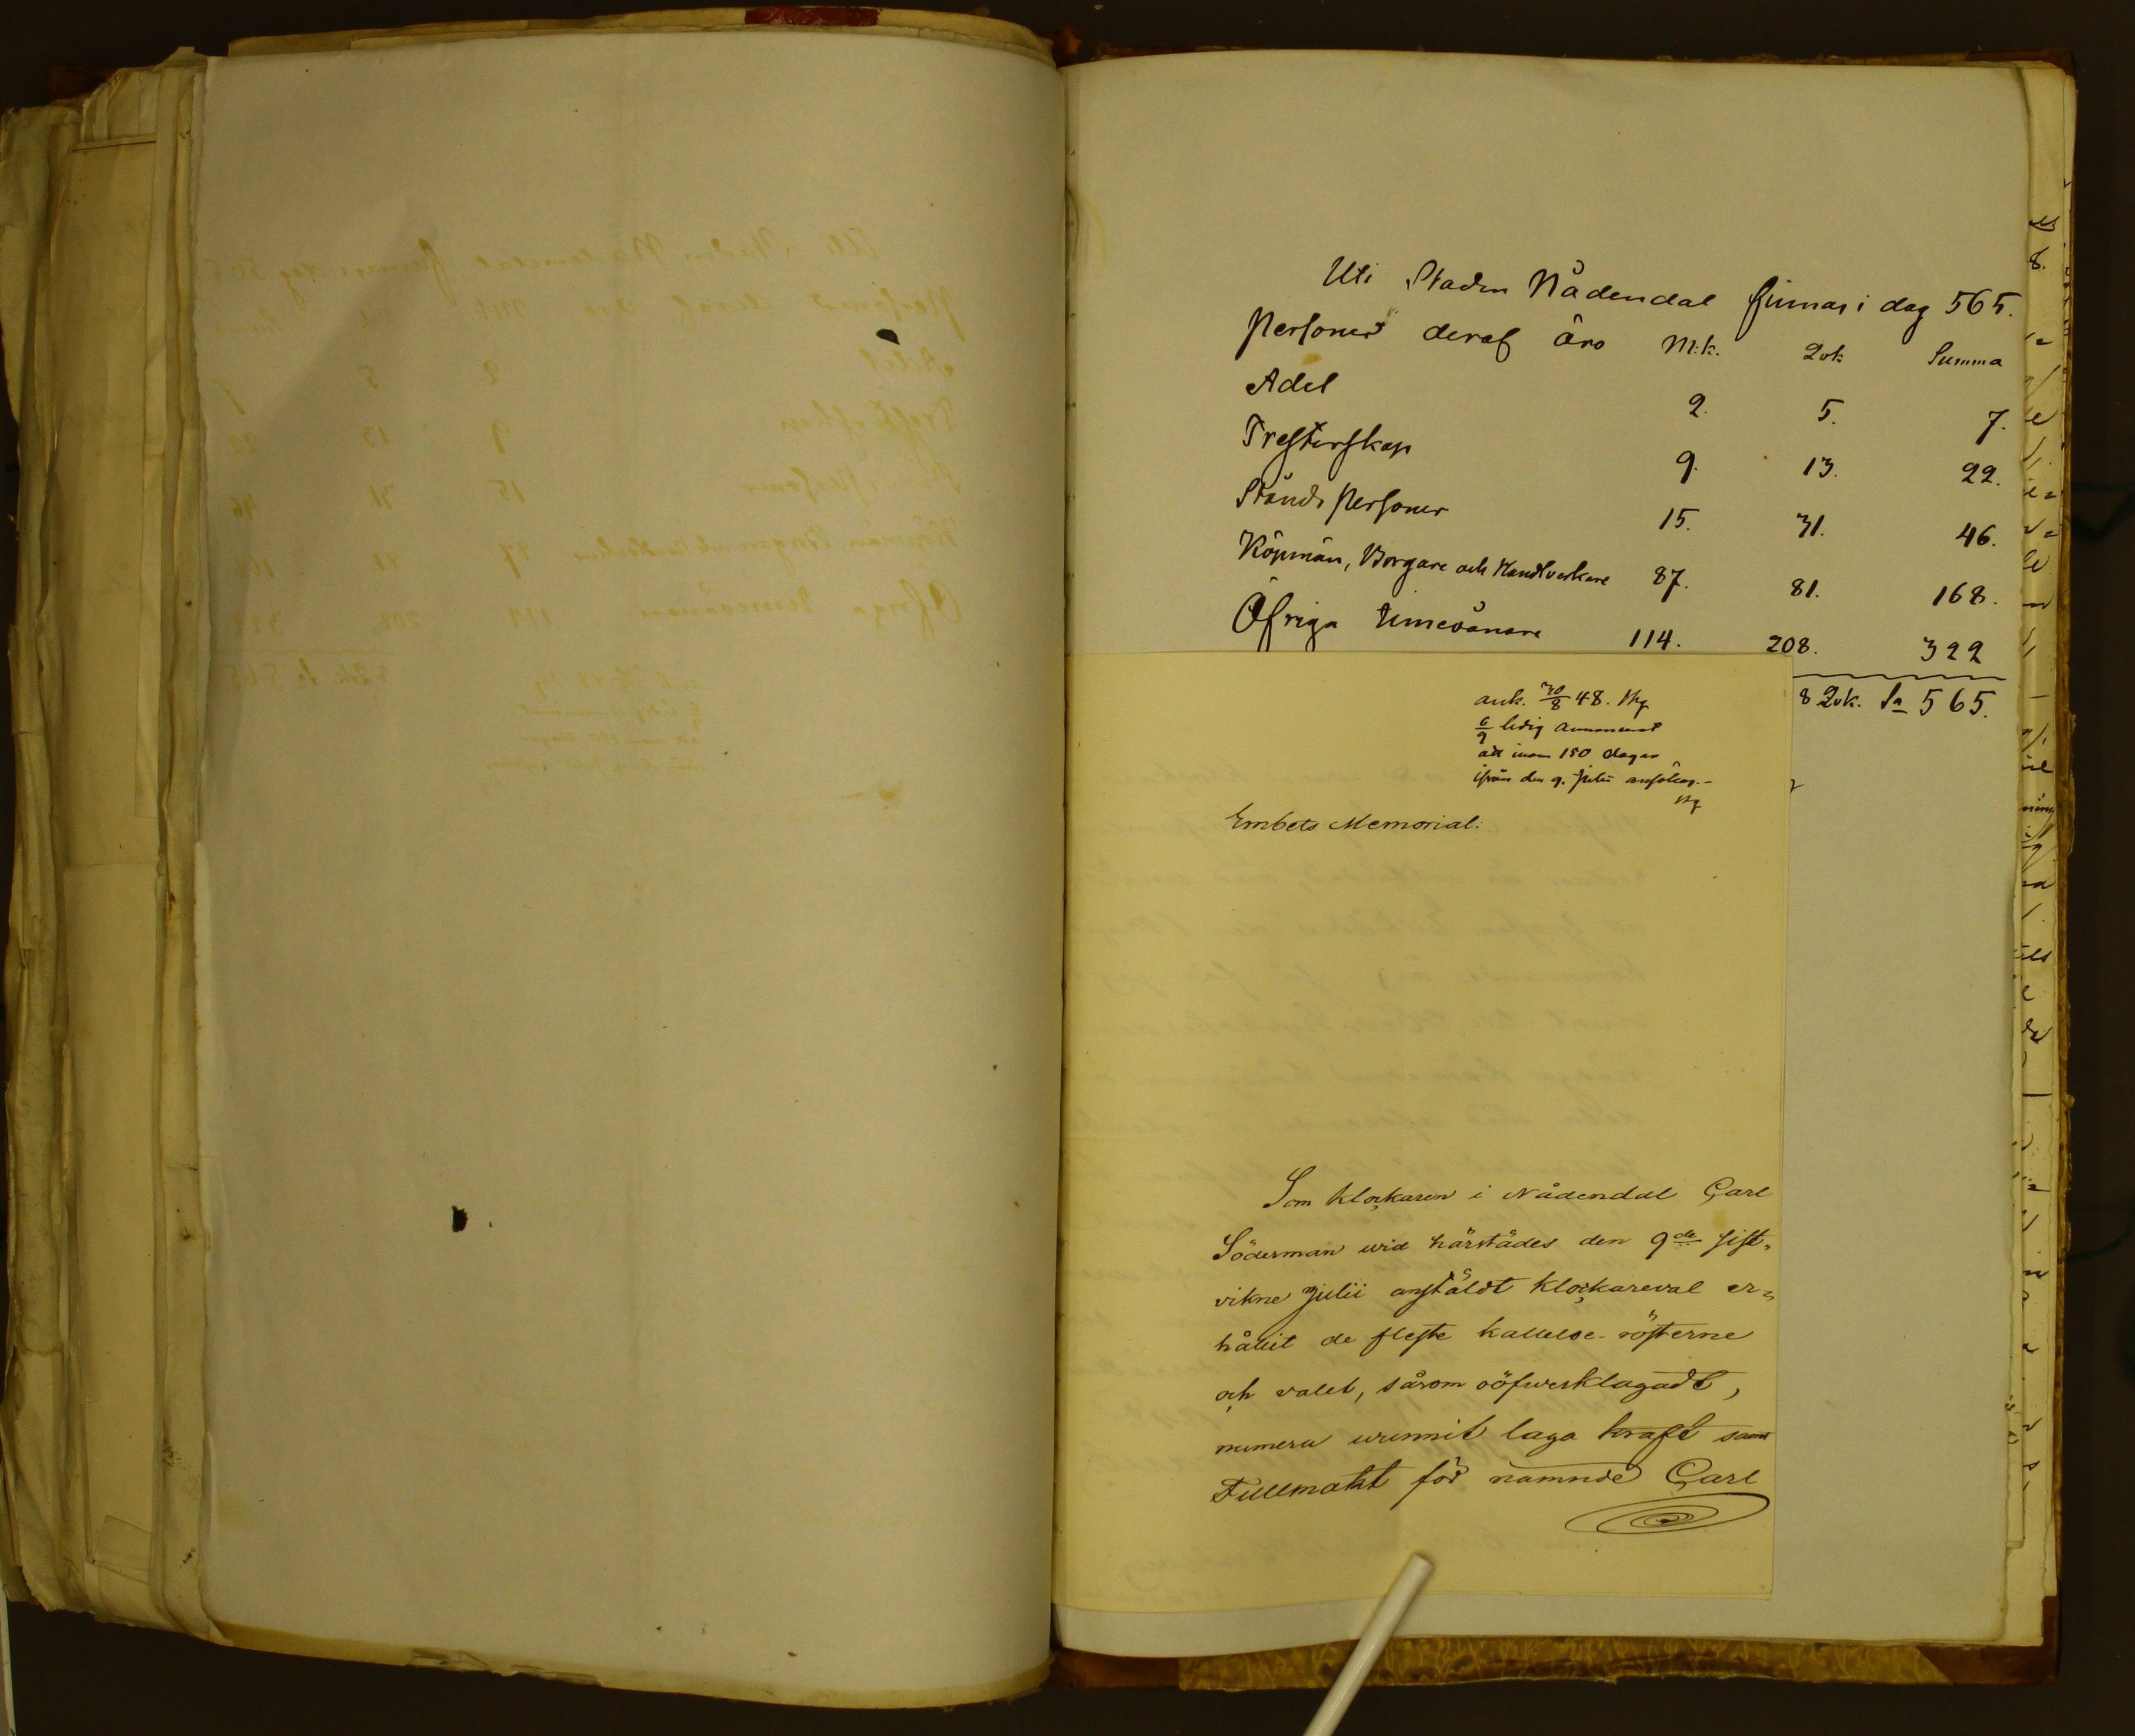 Uti Staden Nådendal finnas i dag 565.
personer deraf äro M.k. Qvk Summa
Adel 2. 5. 7.
Presterskap 9. 13. 22.
Stånds personer 15. 31. 46.
Köpmän, Borgare och Handtverkare 87. 81. 168.
Öfriga innevånare 114. 208. 322
8 Qvk. Sa 565.
ank. 30/8 48.
6/9 ledig
att inom 150 dagar
ifrån den 9. Julii ansökas.-
Embets Memorial:
Som klockaren i Nådendal Carl
Söderman wid härstädes den 9de sist-
vikne Julii anstäldt klockareval er-
hållit de fleste kallelse-rösterne
och valet, såsom oöfwerklagadt,
numera wunnit laga kraft samt
Fullmakt för nämnde Carl